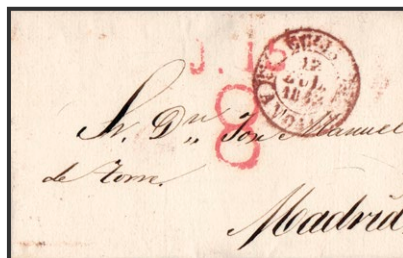 12
JUL
1842
8
Sr. Dn. Jose Manuel
de Torre.
Madrid